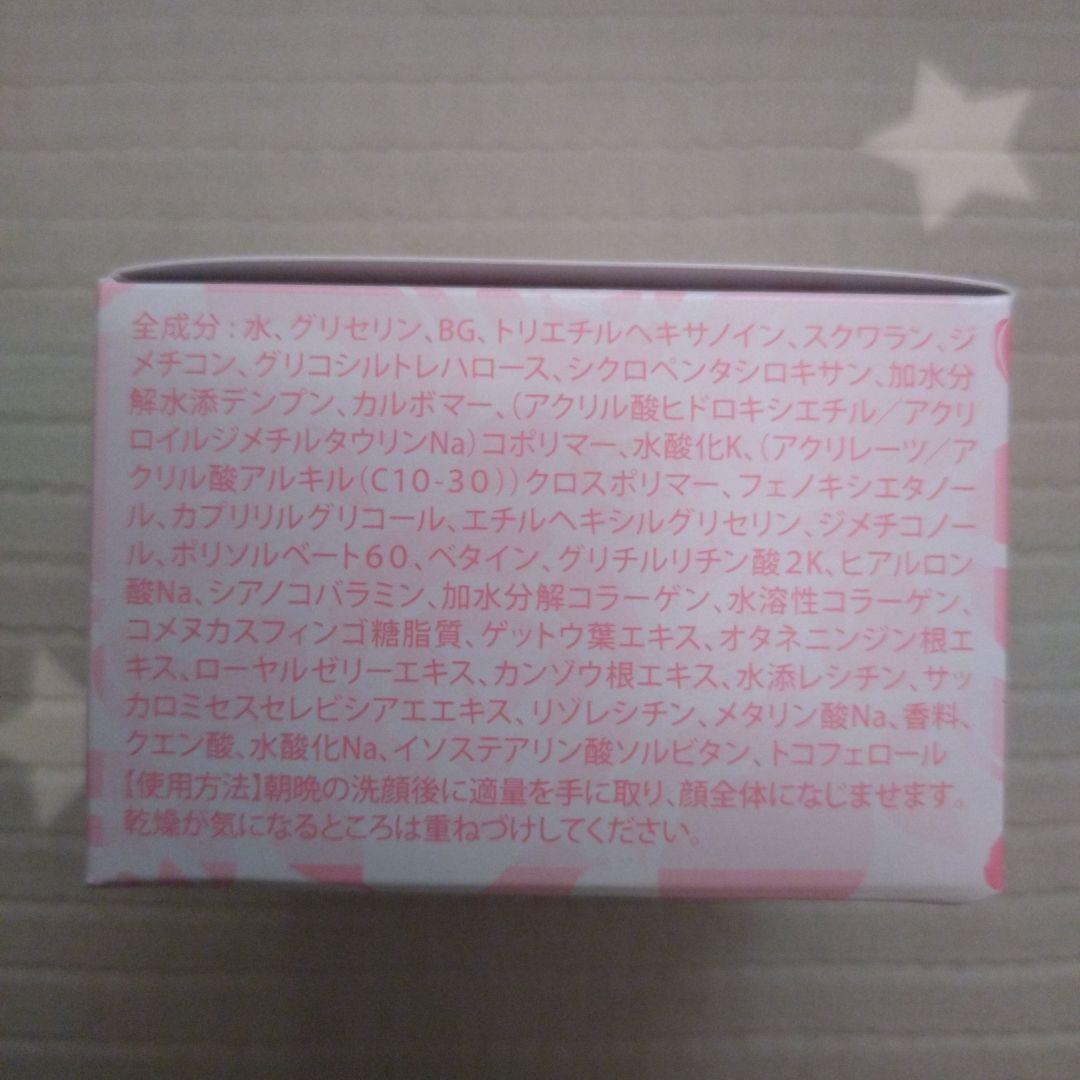 全成分：水、グリセリン、BG、トリエチルヘキサノイン、スクワラン、ジ
メチコン、グリコシルトレハロース、シクロペンタシロキサン、加水分
解水添デンプン、カルボマー、（アクリル酸ヒドロキシエチル／アクリ
ロイルジメチルタウリンNa）コポリマー、水酸化K、（アクリレーツ／ア
クリル酸アルキル（C10-30））クロスポリマー、フェノキシエタノー
ル、カプリリルグリコール、エチルヘキシルグリセリン、ジメチコノー
ル、ポリソルベート60、ベタイン、グリチルリチン酸2K、ヒアルロン
酸Na、シアノコバラミン、加水分解コラーゲン、水溶性コラーゲン、
コメヌカスフィンゴ糖脂質、ゲットウ葉エキス、オタネニンジン根エ
キス、ローヤルゼリーエキス、カンゾウ根エキス、水添レシチン、サッ
カロミセスセレビシアエエキス、リゾレシチン、メタリン酸Na、香料、
クエン酸、水酸化Na、イソステアリン酸ソルビタン、トコフェロール
【使用方法】朝晩の洗顔後に適量を手に取り、顔全体になじませます。
乾燥が気になるところは重ねづけしてください。